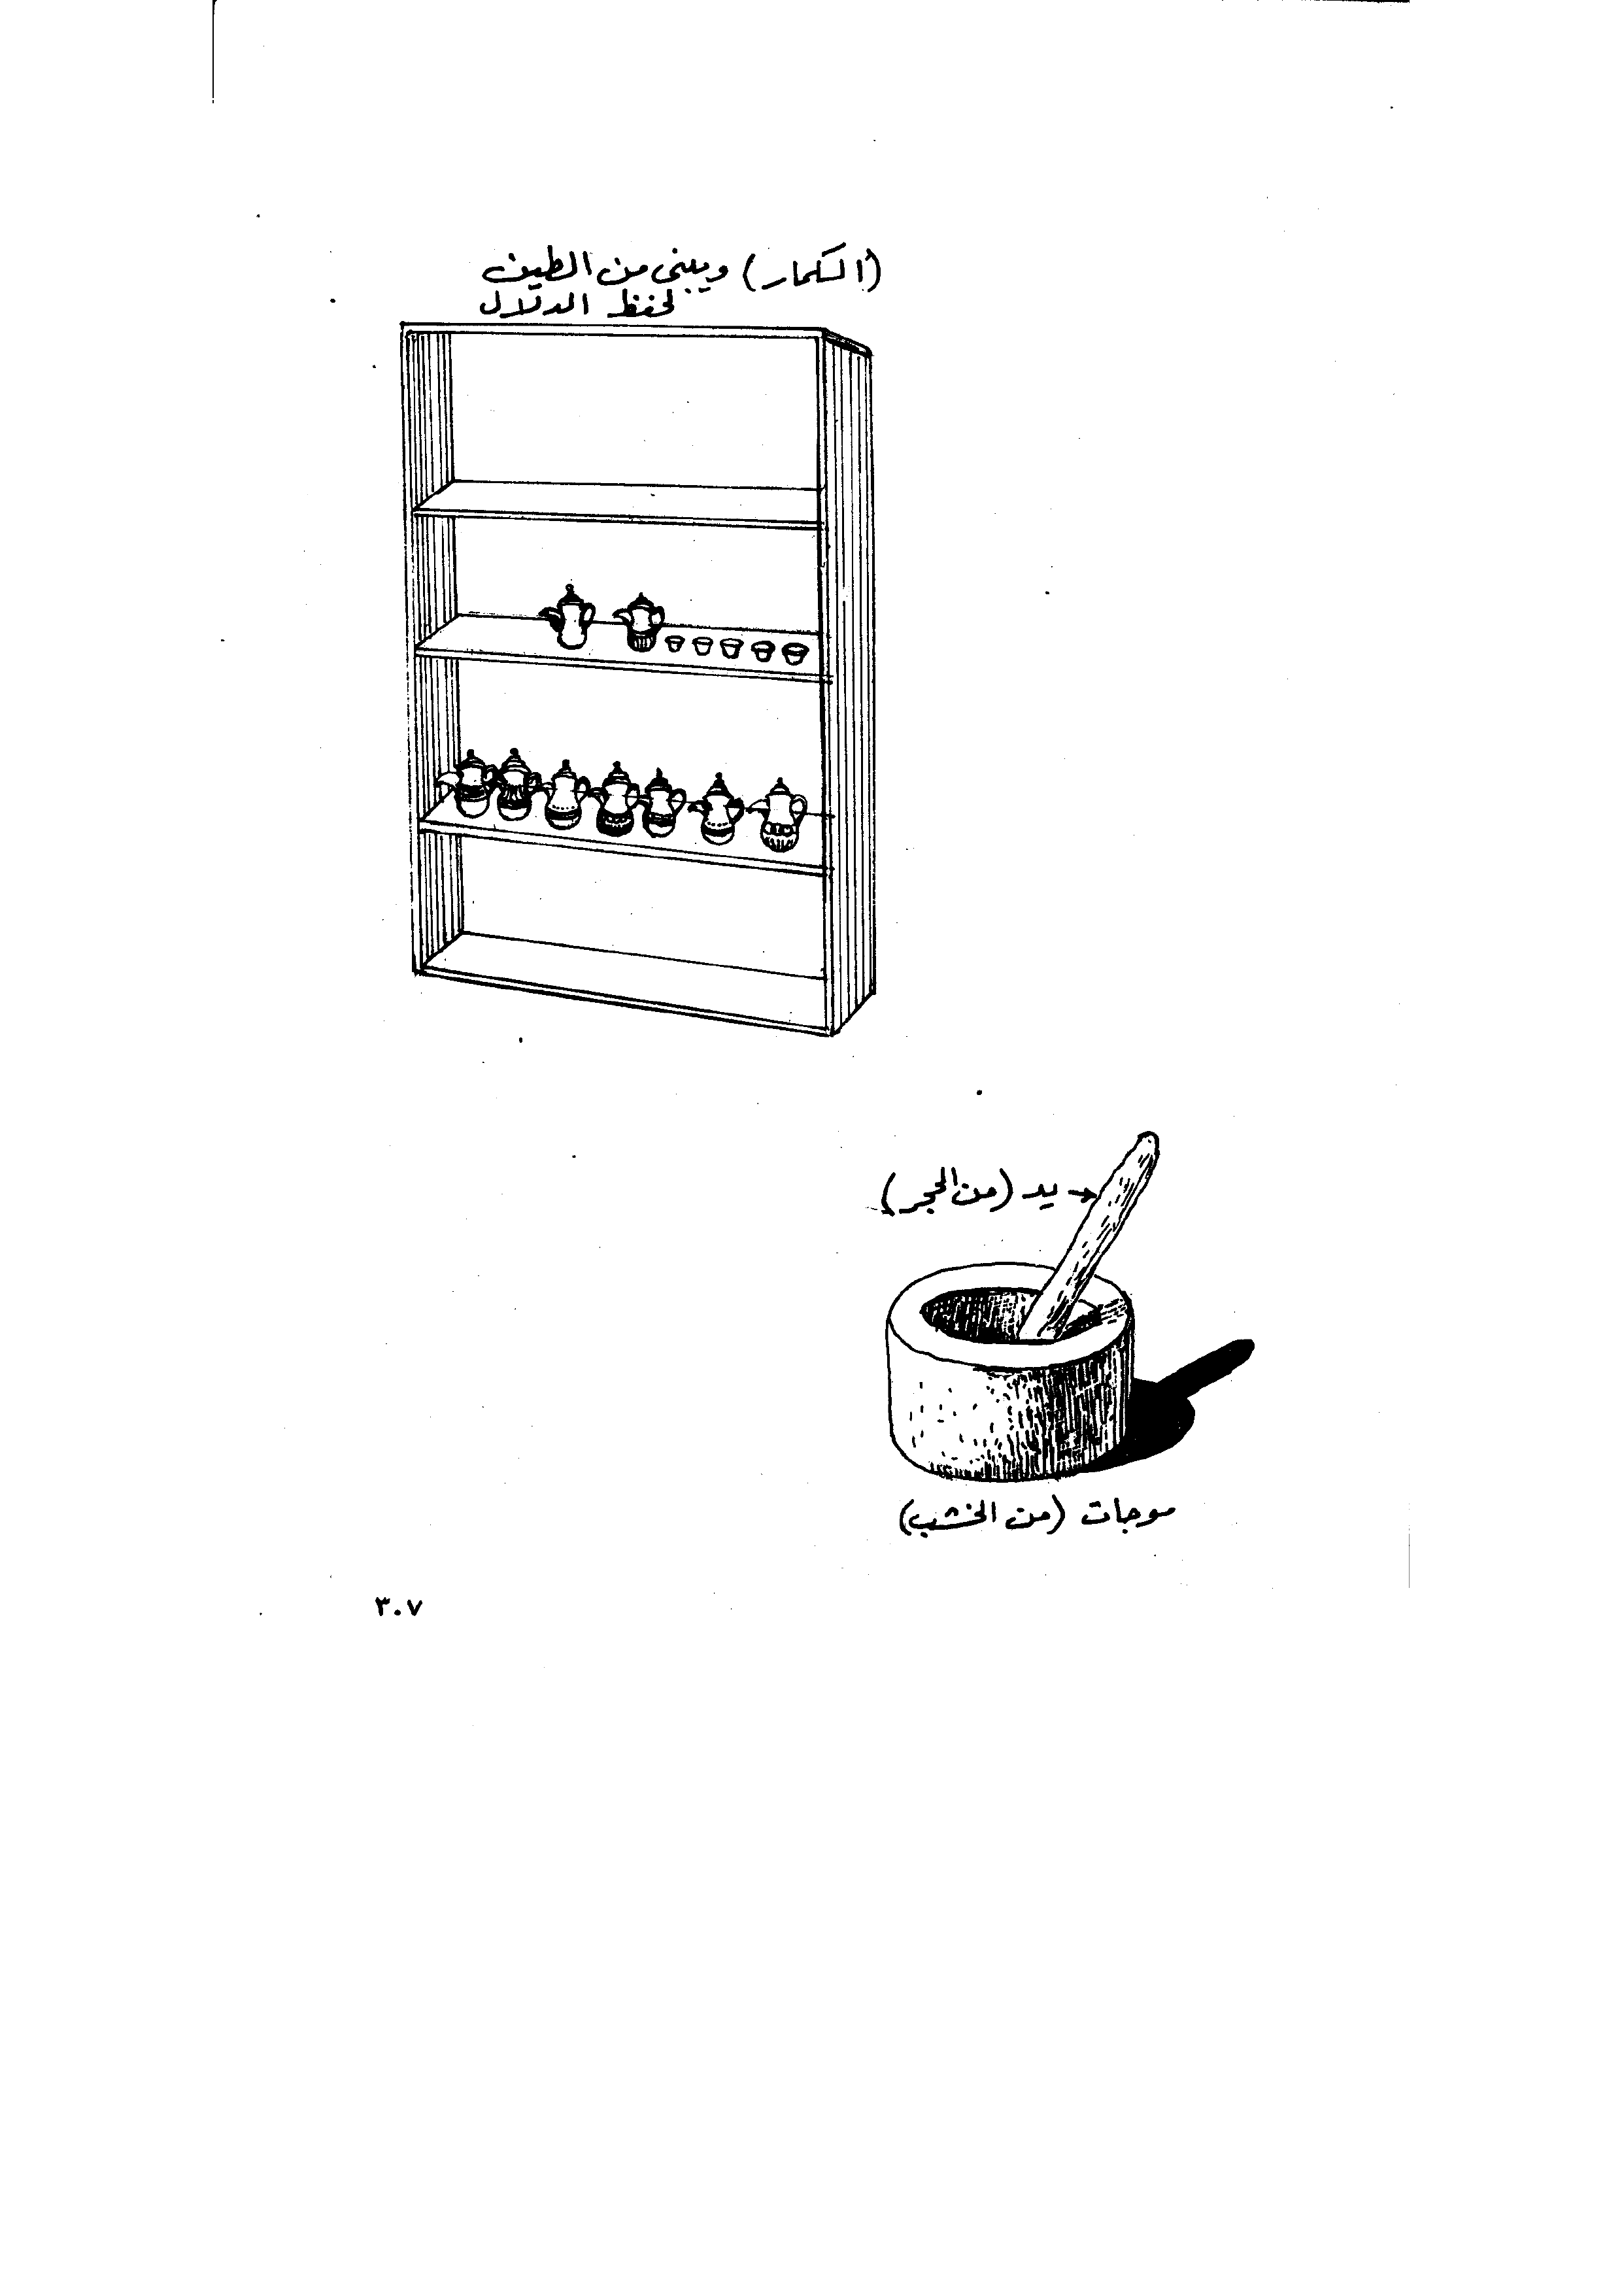 (الكمار) ويبنى من الطين
لحفظ الدلال
يد (من الحجر)
موجات (من الخشب)
٣٠٧